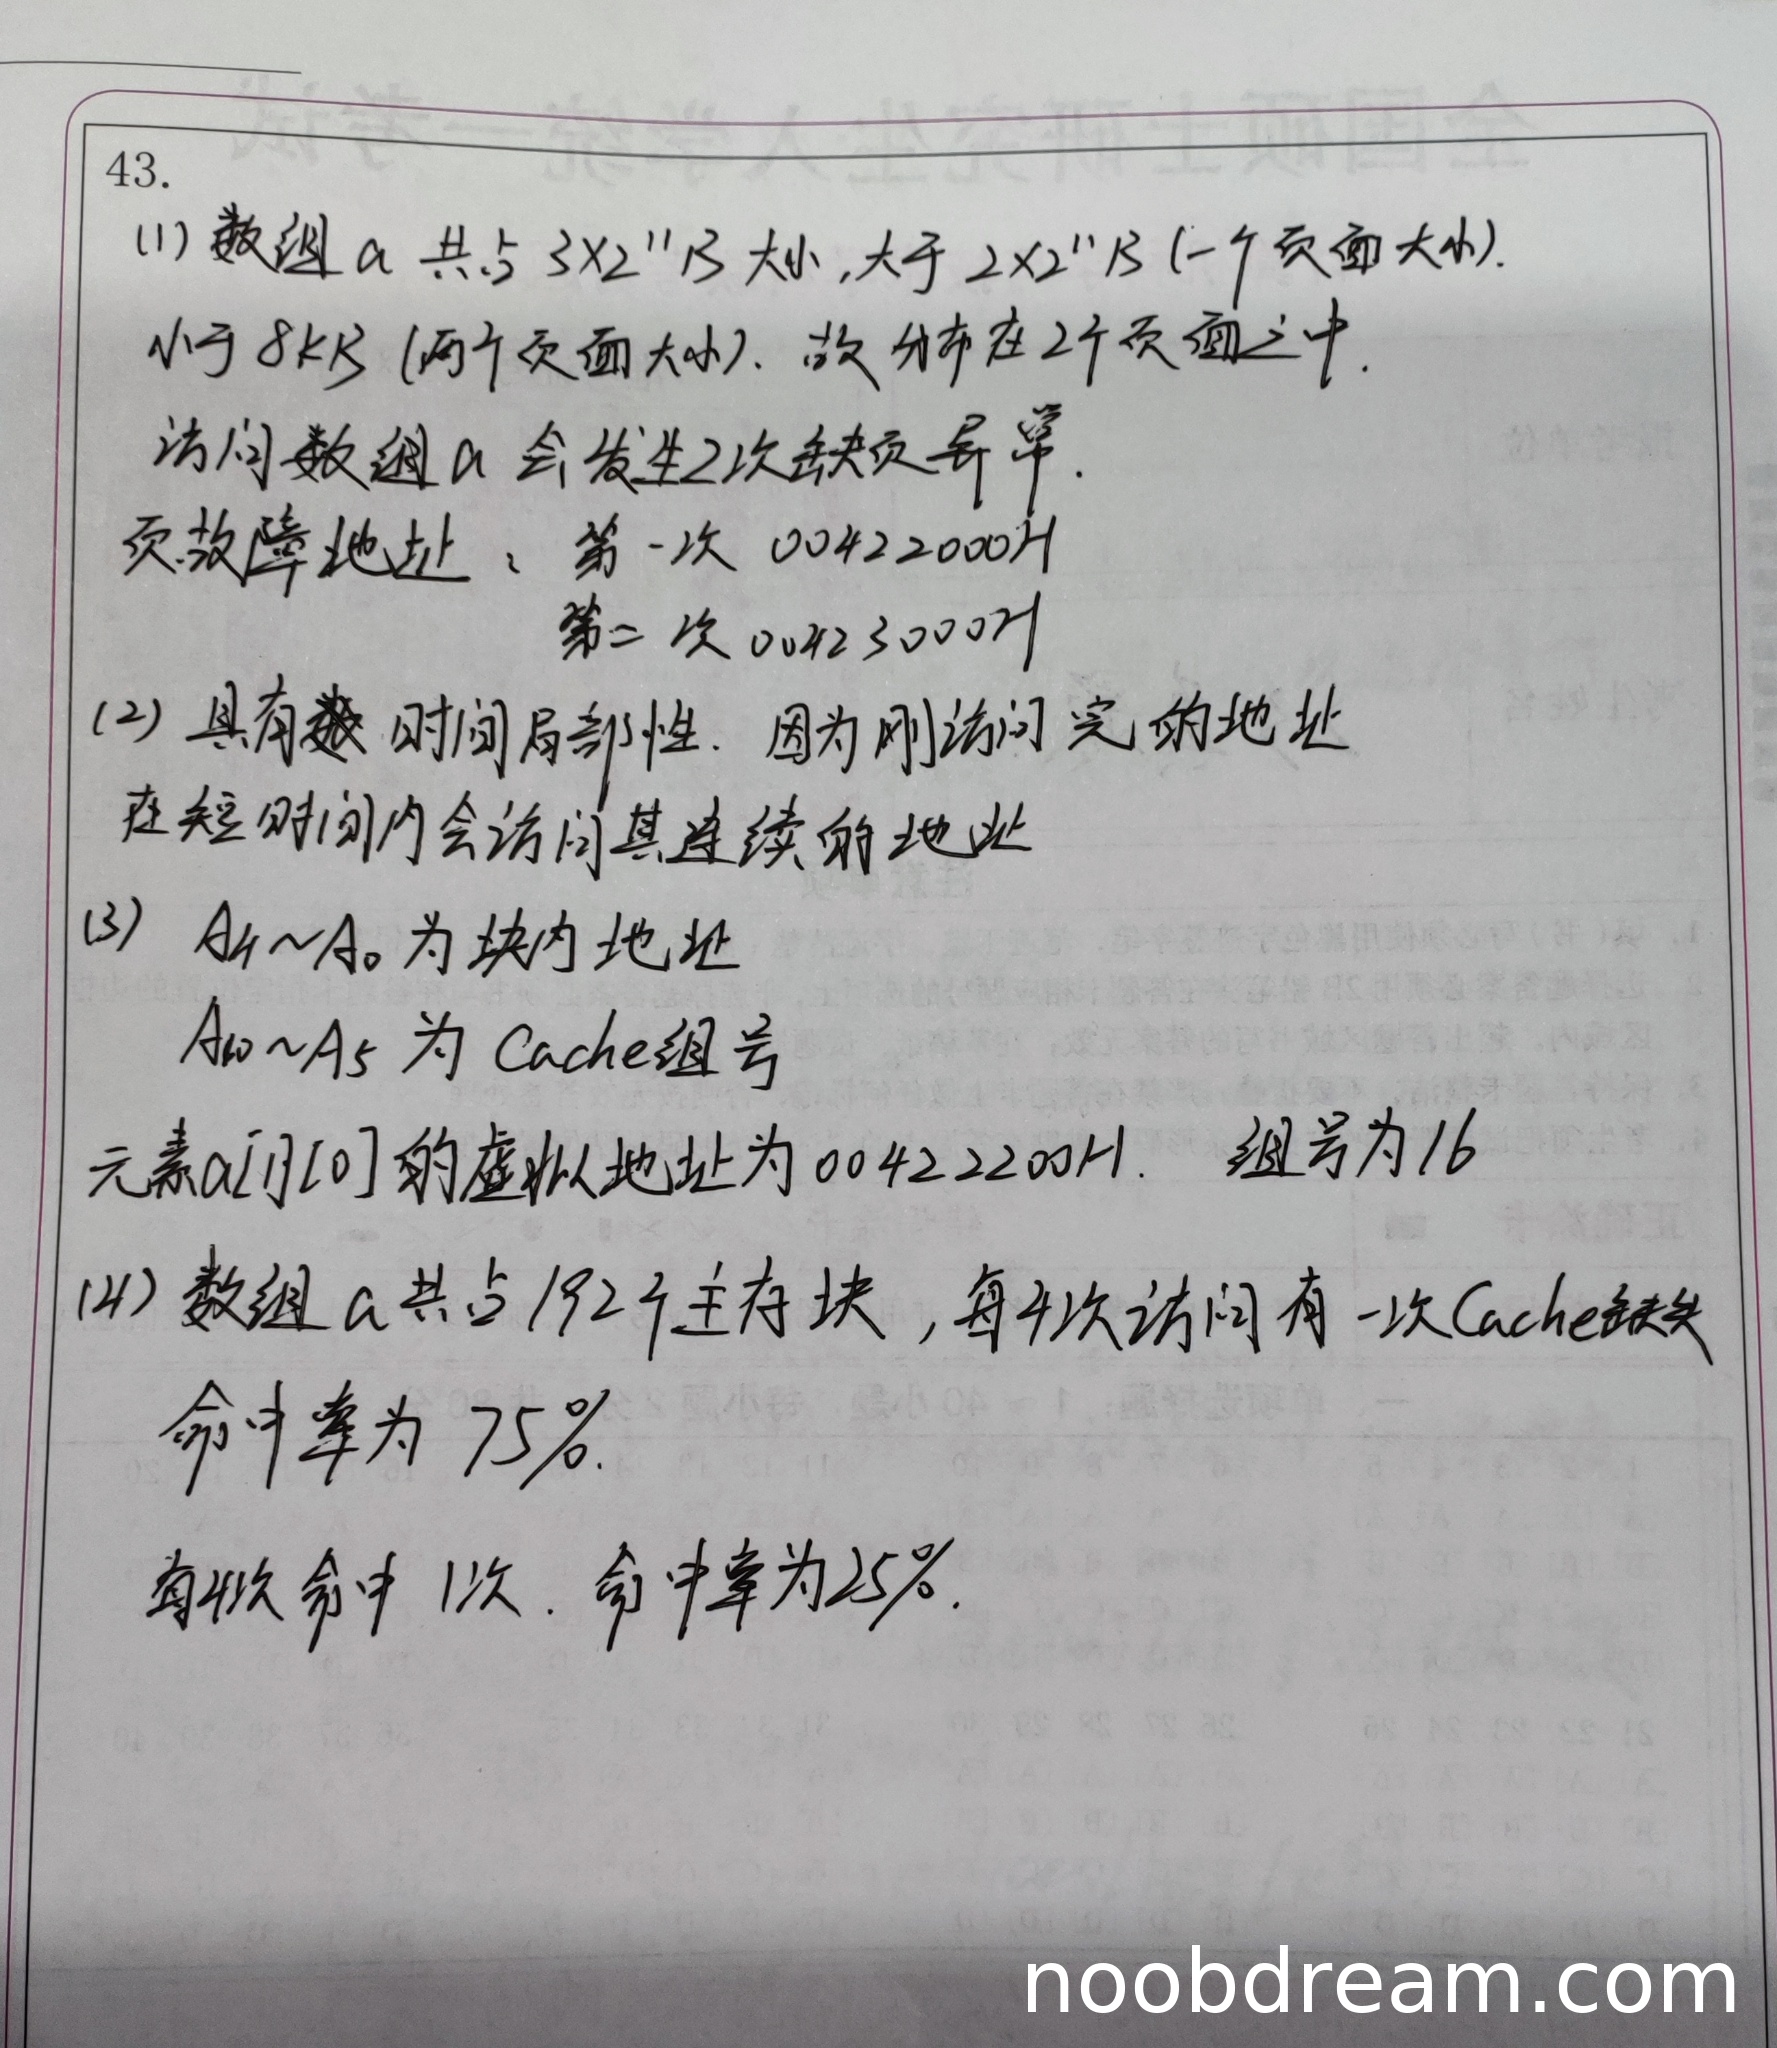 43.
(1) 数组 a 共占 3×2¹¹B 大小,大于 2×2¹¹B (一个页面大小).
小于 8KB (两个页面大小). 故分布在2个页面之中.
访问数组a 会发生2次缺页异常.
页故障地址: 第一次 00422000H
第二次 00423000H
(2) 具有 时间局部性. 因为刚访问完的地址
在短时间内会访问其连续的地址
(3) A4~A0 为块内地址
A10~A5 为 Cache组号
元素a[1][0]的虚拟地址为00422200H. 组号为16
(4) 数组a共占192个主存块,每4次访问有一次Cache缺失
命中率为 75%.
每4次命中 1次. 命中率为25%.
noobdream.com